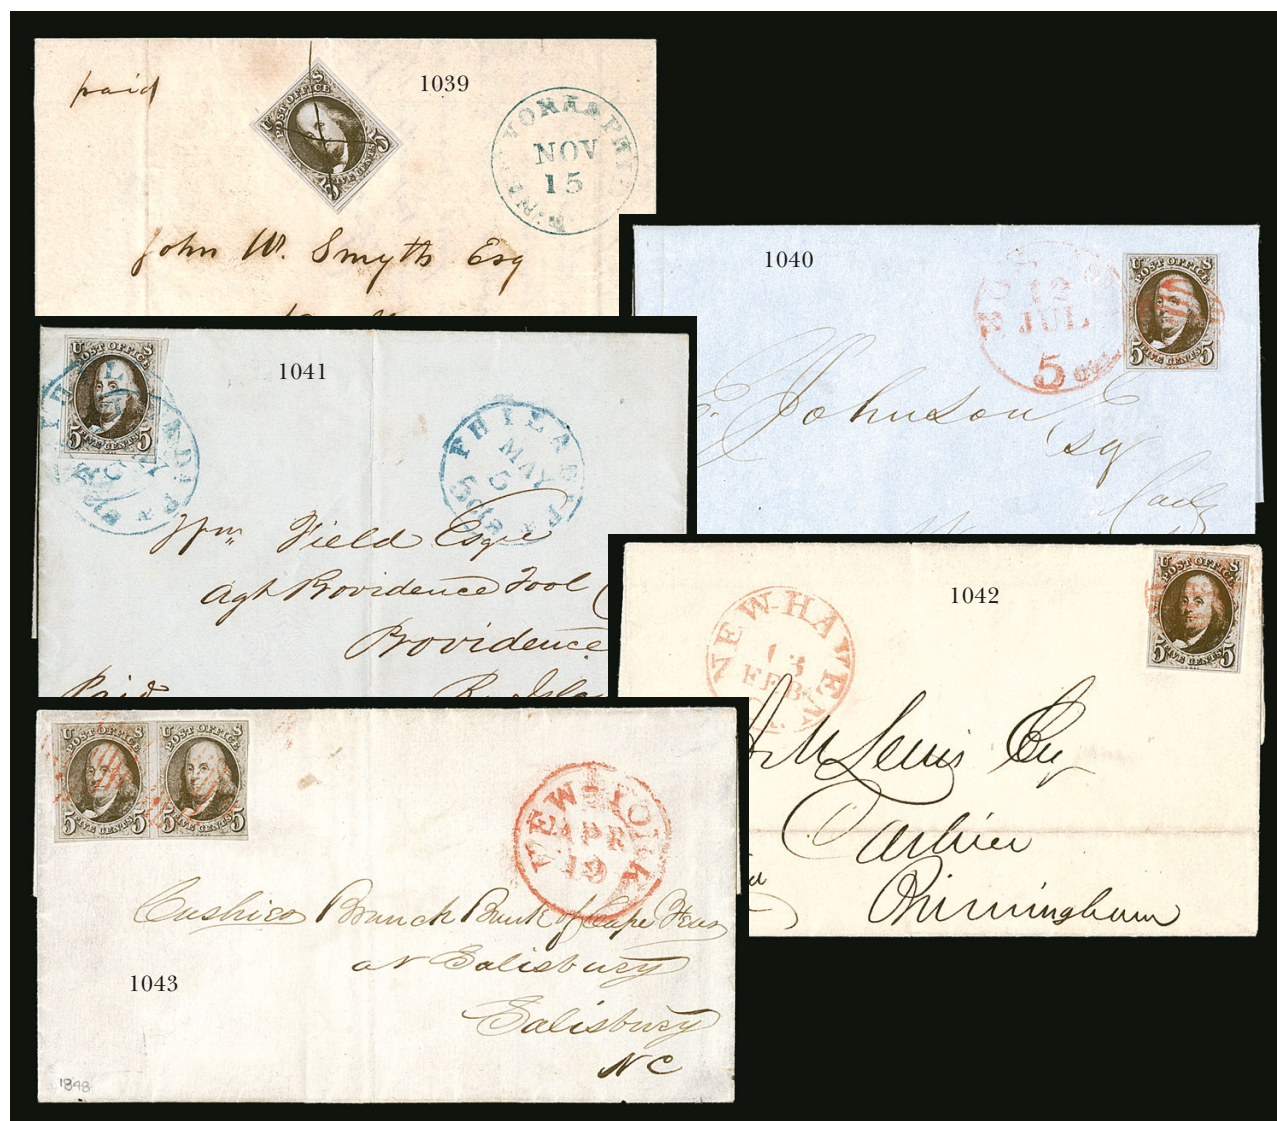 paid
1039
U S
POST OFFICE
FIVE CENTS
NOV
15
John W. Smyth Esq
1040
12
JUL
5 cts
U S
POST OFFICE
5 FIVE CENTS 5
E. Johnson Esq
1041
U S
POST OFFICE
5 FIVE CENTS 5
PHILADA PA
PHILADA PA
MAY
5
5 cts
Wm Field Esqre
Agt Providence Tool
Providence
Paid
R. Isla
1042
U S
POST OFFICE
5 FIVE CENTS 5
NEW-HAVEN
13
FEB
Lewis Esq
Cashier
Birmingham
1043
U S
POST OFFICE
5 FIVE CENTS 5
U S
POST OFFICE
5 FIVE CENTS 5
NEW-YORK
APR
19
Cashier Branch Bank of Cape Fear
at Salisbury
Salisbury
NC
1848